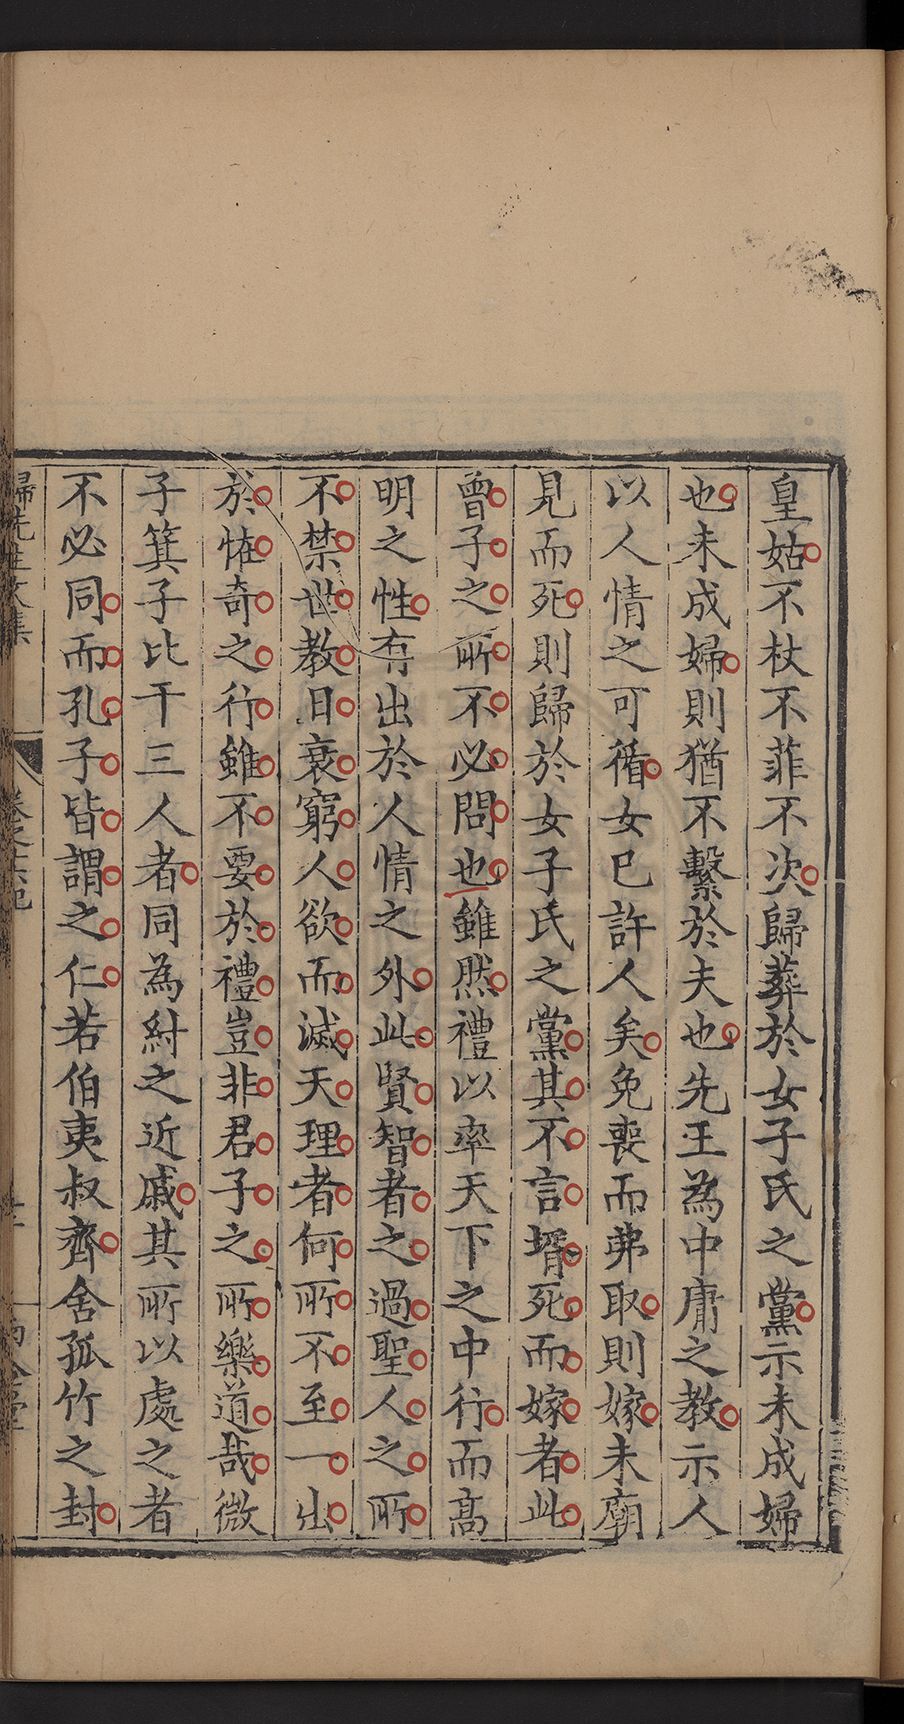 皇姑不杖不菲不次歸葬於女子氏之黨示未成婦
也未成婦則猶不繫於夫也先王為中庸之教示人
以人情之可循女已許人矣免喪而弗取則嫁未廟
見而死則歸於女子氏之黨其不言壻死而嫁者此
曾子之所不必問也雖然禮以率天下之中行而高
明之性有出於人情之外此賢智者之過聖人之所
不禁世教日衰窮人欲而滅天理者何所不至一出
於恠奇之行雖不要於禮豈非君子之所樂道哉微
子箕子比干三人者同為紂之近戚其所以處之者
不必同而孔子皆謂之仁若伯夷叔齊舍孤竹之封
歸先生文集